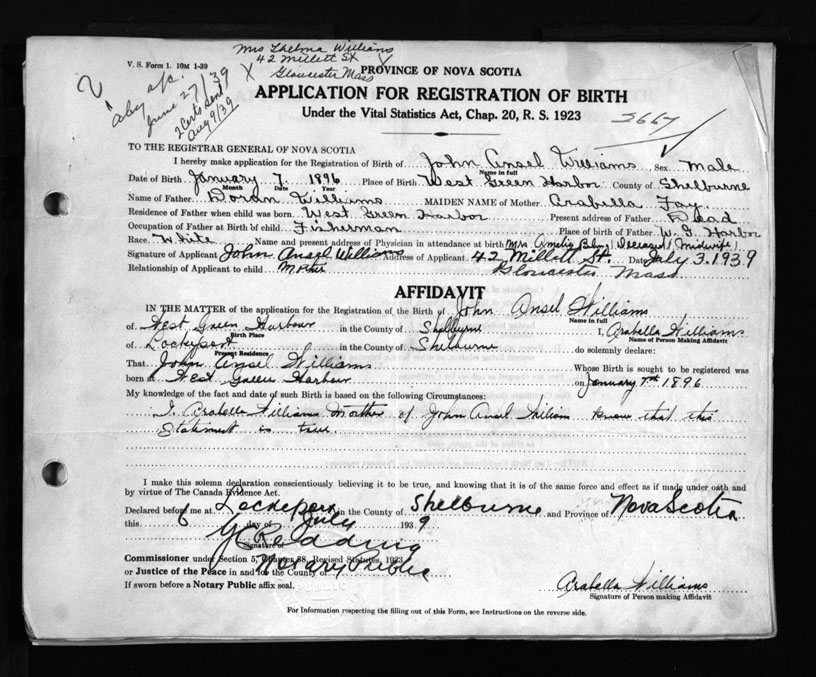 V. S. Form 1. 10M 1-39
Mrs Thelma Williams
42 Millett St
Gloucester Mass
June 27/39
2 Certs Sent
Aug 9/39
PROVINCE OF NOVA SCOTIA
APPLICATION FOR REGISTRATION OF BIRTH
Under the Vital Statistics Act, Chap. 20, R. S. 1923
3667
TO THE REGISTRAR GENERAL OF NOVA SCOTIA
I hereby make application for the Registration of Birth of John Ansel Williams Sex Male
Name in full
Date of Birth January 7. 1896 Place of Birth West Green Harbor County of Shelburne
Month Date Year
Name of Father Doran Williams MAIDEN NAME of Mother Arabella Fay
Residence of Father when child was born West Green Harbor Present address of Father Dead
Occupation of Father at Birth of Child Fisherman Place of birth of Father W. G. Harbor
Race White Name and present address of Physician in attendance at birth Mrs (Deceased) (midwife)
Signature of Applicant John Ansel Williams Address of Applicant 42 Millett St. Date July 3. 1939
Relationship of Applicant to child Gloucester Mass
AFFIDAVIT
IN THE MATTER of the application for the Registration of the Birth of John Ansel Williams
Name in full
of West Green Harbour in the County of Shelburne I, Arabella Williams
Birth Place Name of Person Making Affidavit
of Lockeport in the County of Shelburne do solemnly declare:
Present Residence
That John Ansel Williams Whose Birth is sought to be registered was
born at West Green Harbour on January 7th 1896
My knowledge of the fact and date of such Birth is based on the following Circumstances:
I Arabella Williams Mother of John Ansel Williams know that this
Statement is true
I make this solemn declaration conscientiously believing it to be true, and knowing that it is of the same force and effect as if made under oath and
by virtue of The Canada Evidence Act.
Declared before me at Lockeport in the County of Shelburne and Province of Nova Scotia
this 6 day of July 1939
Signature of
Commissioner under Section 5, Chapter 38, Revised Statutes, 1923
or Justice of the Peace in and for the County of Notary Public
If sworn before a Notary Public affix seal.
Arabella Williams
Signature of Person making Affidavit
For Information respecting the filling out of this Form, see Instructions on the reverse side.